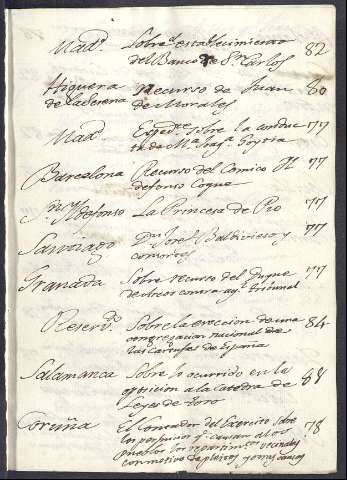 Madd. Sobre el establecimiento
del Banco de Sn. Carlos 82
Higuera
de la Serena Recurso de Juan
de Morales 80
Madd. Expedte. sobre la conduc
ta de Ma. Josfa. Goytia 77
Barcelona Recurso del Comico Il
defonso Coque 77
Sn. Yldefonso La Princesa de Pio 77
Santiago Dn. Josef Baldivieso y
consortes 77
Granada Sobre recurso del Duque
de Arcos contra aql. tribunal 77
Reservdo. Sobre la ereccion de una
congregacion nacional de
las cartujas de España 84
Salamanca Sobre lo ocurrido en la
oposicion a la catedra de
Leyes de Toro 88
Coruña El Contador del Exercito sobre
los perjuicios q. causan al
pueblos los repartimtos. vecinales
con motivo de pleitos y otros daños 78